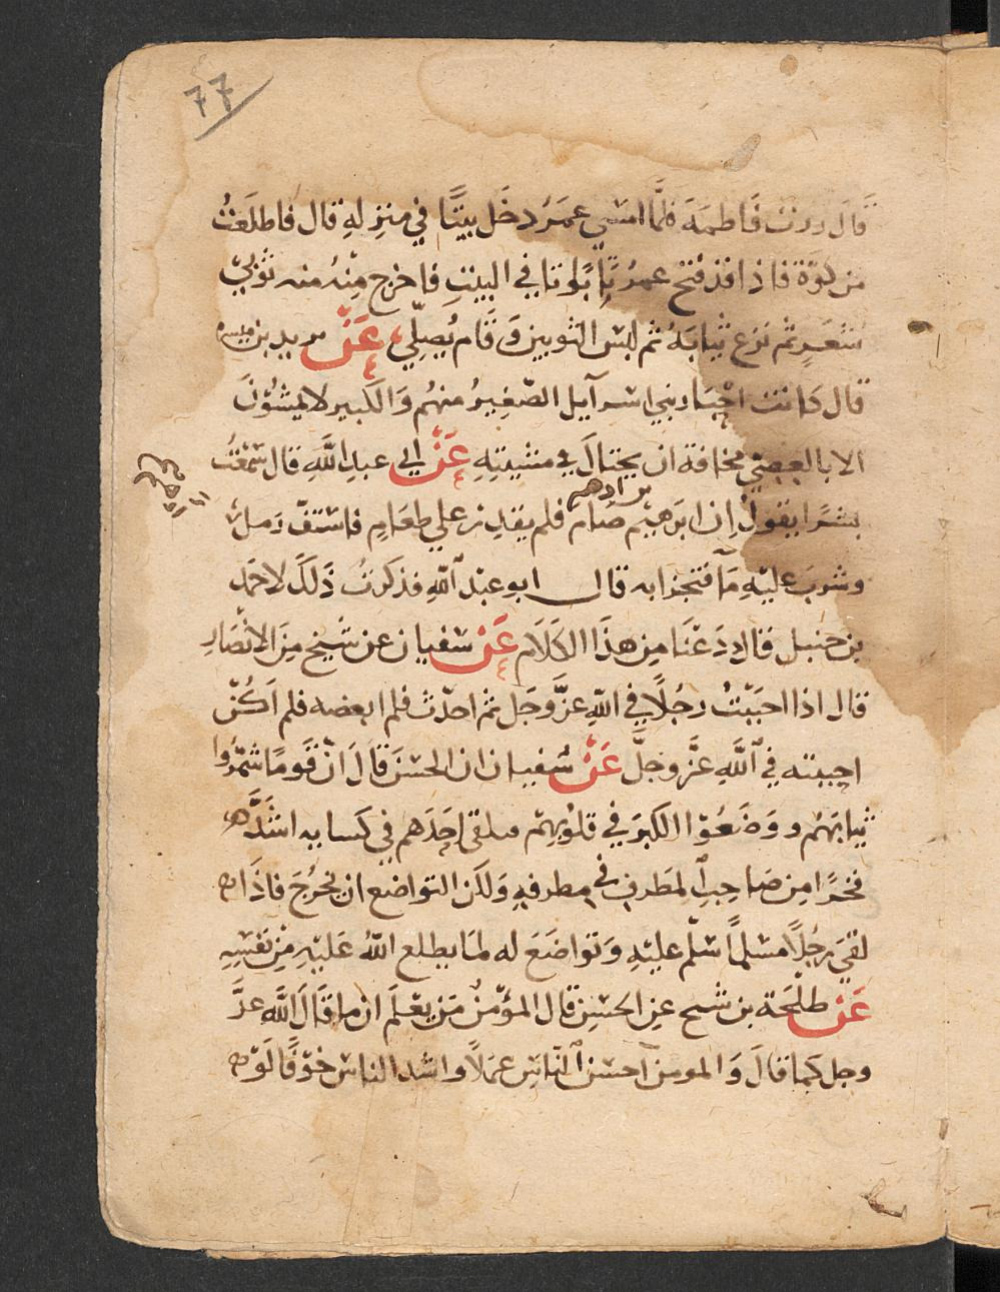 77
قَالَ زرت فَاطمَةَ فلَمَّا امسَي عمَرُ دخَل بيتًا في منزِلهِ قال فاطلَعتُ
من كوّة فاذا قد فتح عمرُ تابُوتا في البيتِ فاخرج مِنهُ منه ثوبيْ
شَعَرٍ ثم نزع ثيابَهُ ثم لبسَ الثوبين وَقَام يُصلِّي عَنْ يزيد بن ميسره
قال كانت احْبَار بني اسرآيل الصّغيرُ منهُم وَالكَبير لا يمشُونَ
الا بالعصَيّ مخافة ان يختالَ في مشيتهِ عَنْ ابي عبدِ اللَّهِ قال سَمعْتُ
بن ادهم
بشرًا يقولُ اِن ابرَهيم صَام فلم يقدِر علي طعَامٍ فاستفّ رَملً
وشرِبَ عليْهِ مَآ فتجزا به قال ابو عبْد اللَّهِ فذكرتُ ذَلكَ لاحمَد
بن حنبل قال دَعْنَا مِن هذَا الكَلَامِ عَنْ سُفيان عن شَيخ مِنَ الانْصَارِ
قال اذا احبَبْتُ رجُلًا في اللَّهِ عزَّ وجَل ثم احدَث فلم ابغضه فلم اكُنْ
احببته في اللَّهِ عَزَّ وجلَّ عَنْ سُفيان ان الحسَن قالَ انّ قَومًا شمَّروا
ثيابَهُم ووَضَعُوا الكبرَ في قلُوبهِم احَدَهم في كسايه اشدَّ
فخرًا مِن صَاحِبِ المطَرف في مطرفهِ وَلكن التواضع ان يخرُجَ فاذا
لقيَ رجُلًا مسْلمًا سَلّم عليْهِ وَتواضَعَ له لمَا يطلع اللَّهُ عَليْهِ مِن نفسِهِ
عَنْ طلْحَة بن عنِ الحسَنِ قال المؤمنُ مَن يعْلَم ان ما قَالَ اللَّه عزَّ
وجل كما قالَ وَالمومن احسَن النّاسِ عمَلًا واشد الناسِ خوْفًا لَوْ